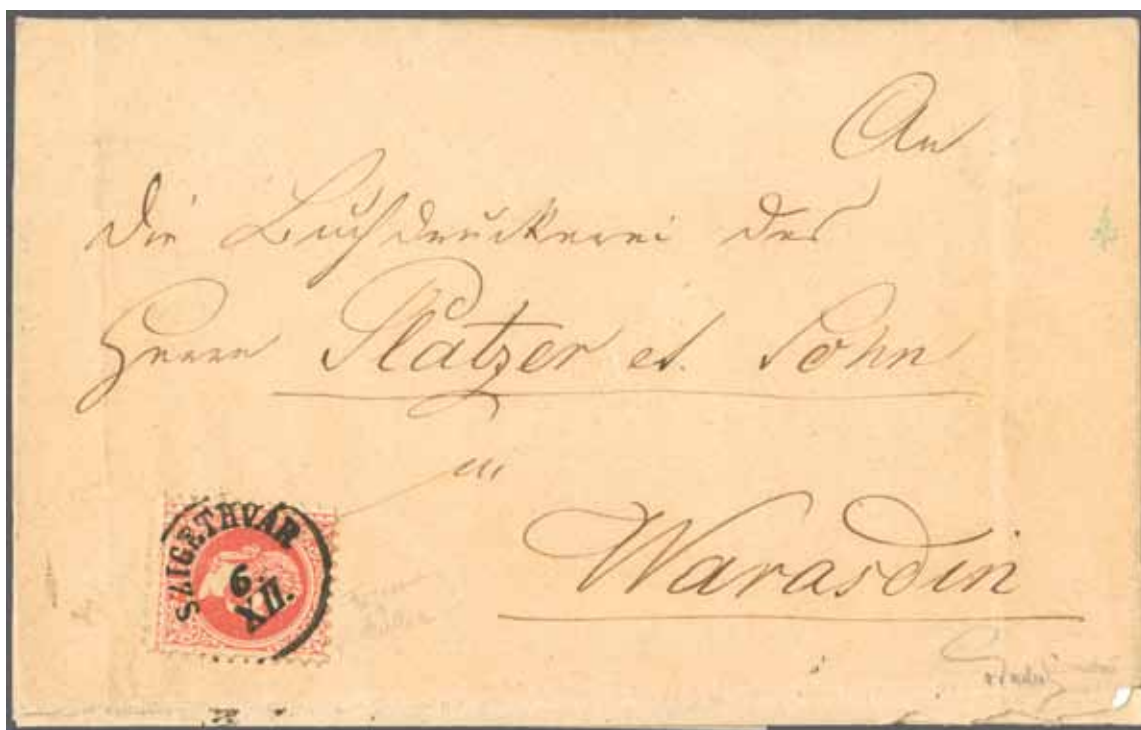 An
die Buchdruckerei des
Herrn Platzer et. Sohn
in
Warasdin
SZIGETHVÁR
6
XII.